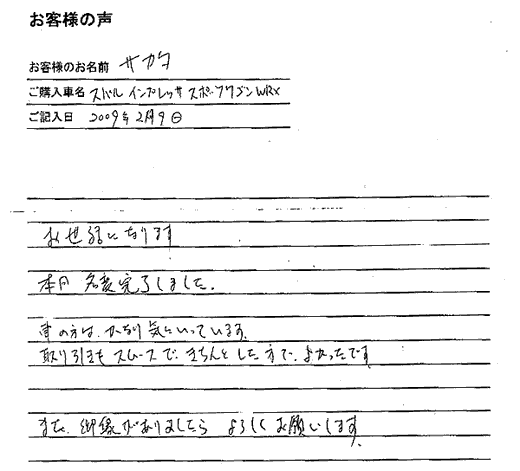 お客様の声
お客様のお名前 サカタ
ご購入車名 スバル インプレッサ スポーツワゴン WRX
ご記入日 2009年2月9日
お世話になります
本日 名変完了しました.
車の方は、かなり気にいっています.
取り引きも スムースで、きちんとした方で、よかったです
また、御縁がありましたら よろしくお願いします